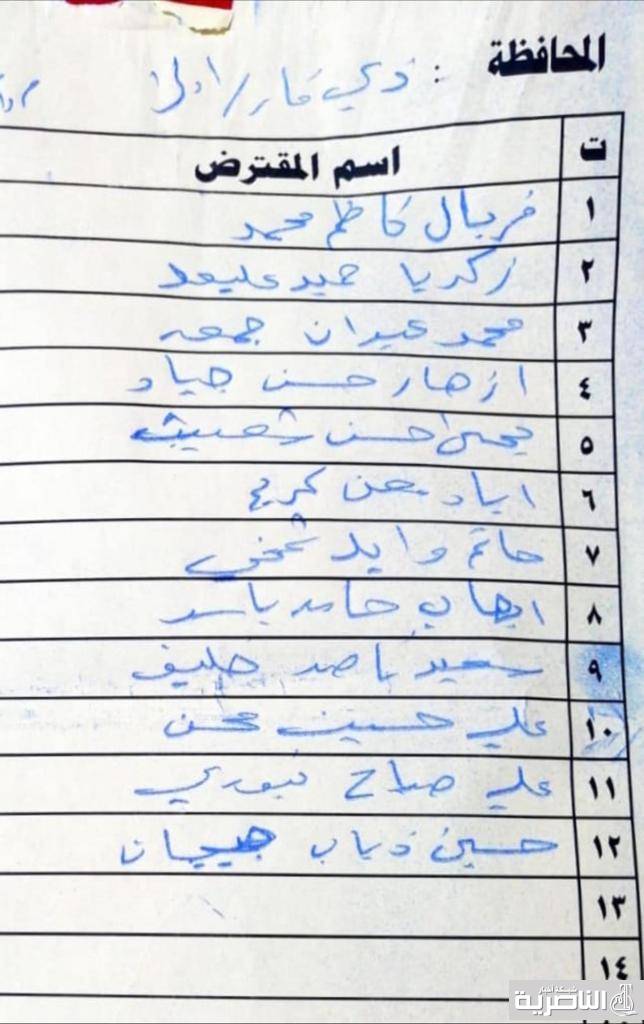 المحافظة : ذي قار / اولى
ت اسم المقترض
١ فريال كاظم محمد
٢ زكريا حميد
٣ محمد عيدان جمعه
٤ ازهار حسن جياد
٥ يحيى حسن شعيث
٦ اياد محن كريم
٧ حاتم وايد شخي
٨ ايهاب حامد ياسر
٩ سعيد ناصر خليف
١٠ علي حسين محسن
١١ علي صباح نبوري
١٢ حسين ذياب
١٣
١٤
شبكة اخبار
الناصرية